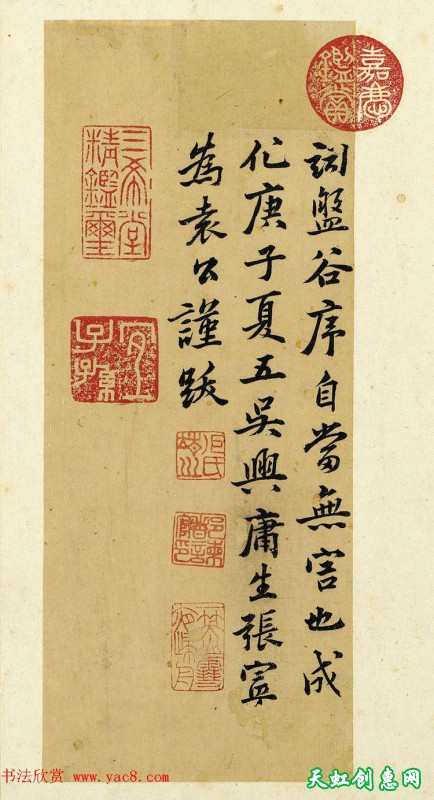 嘉慶鑑賞
詞盤谷序自當無害也成
化庚子夏五吳興庸生張寧
為袁公謹跋
三希堂精鑑璽
宜子孫
书法欣赏 www.yac8.com
天虹创惠网